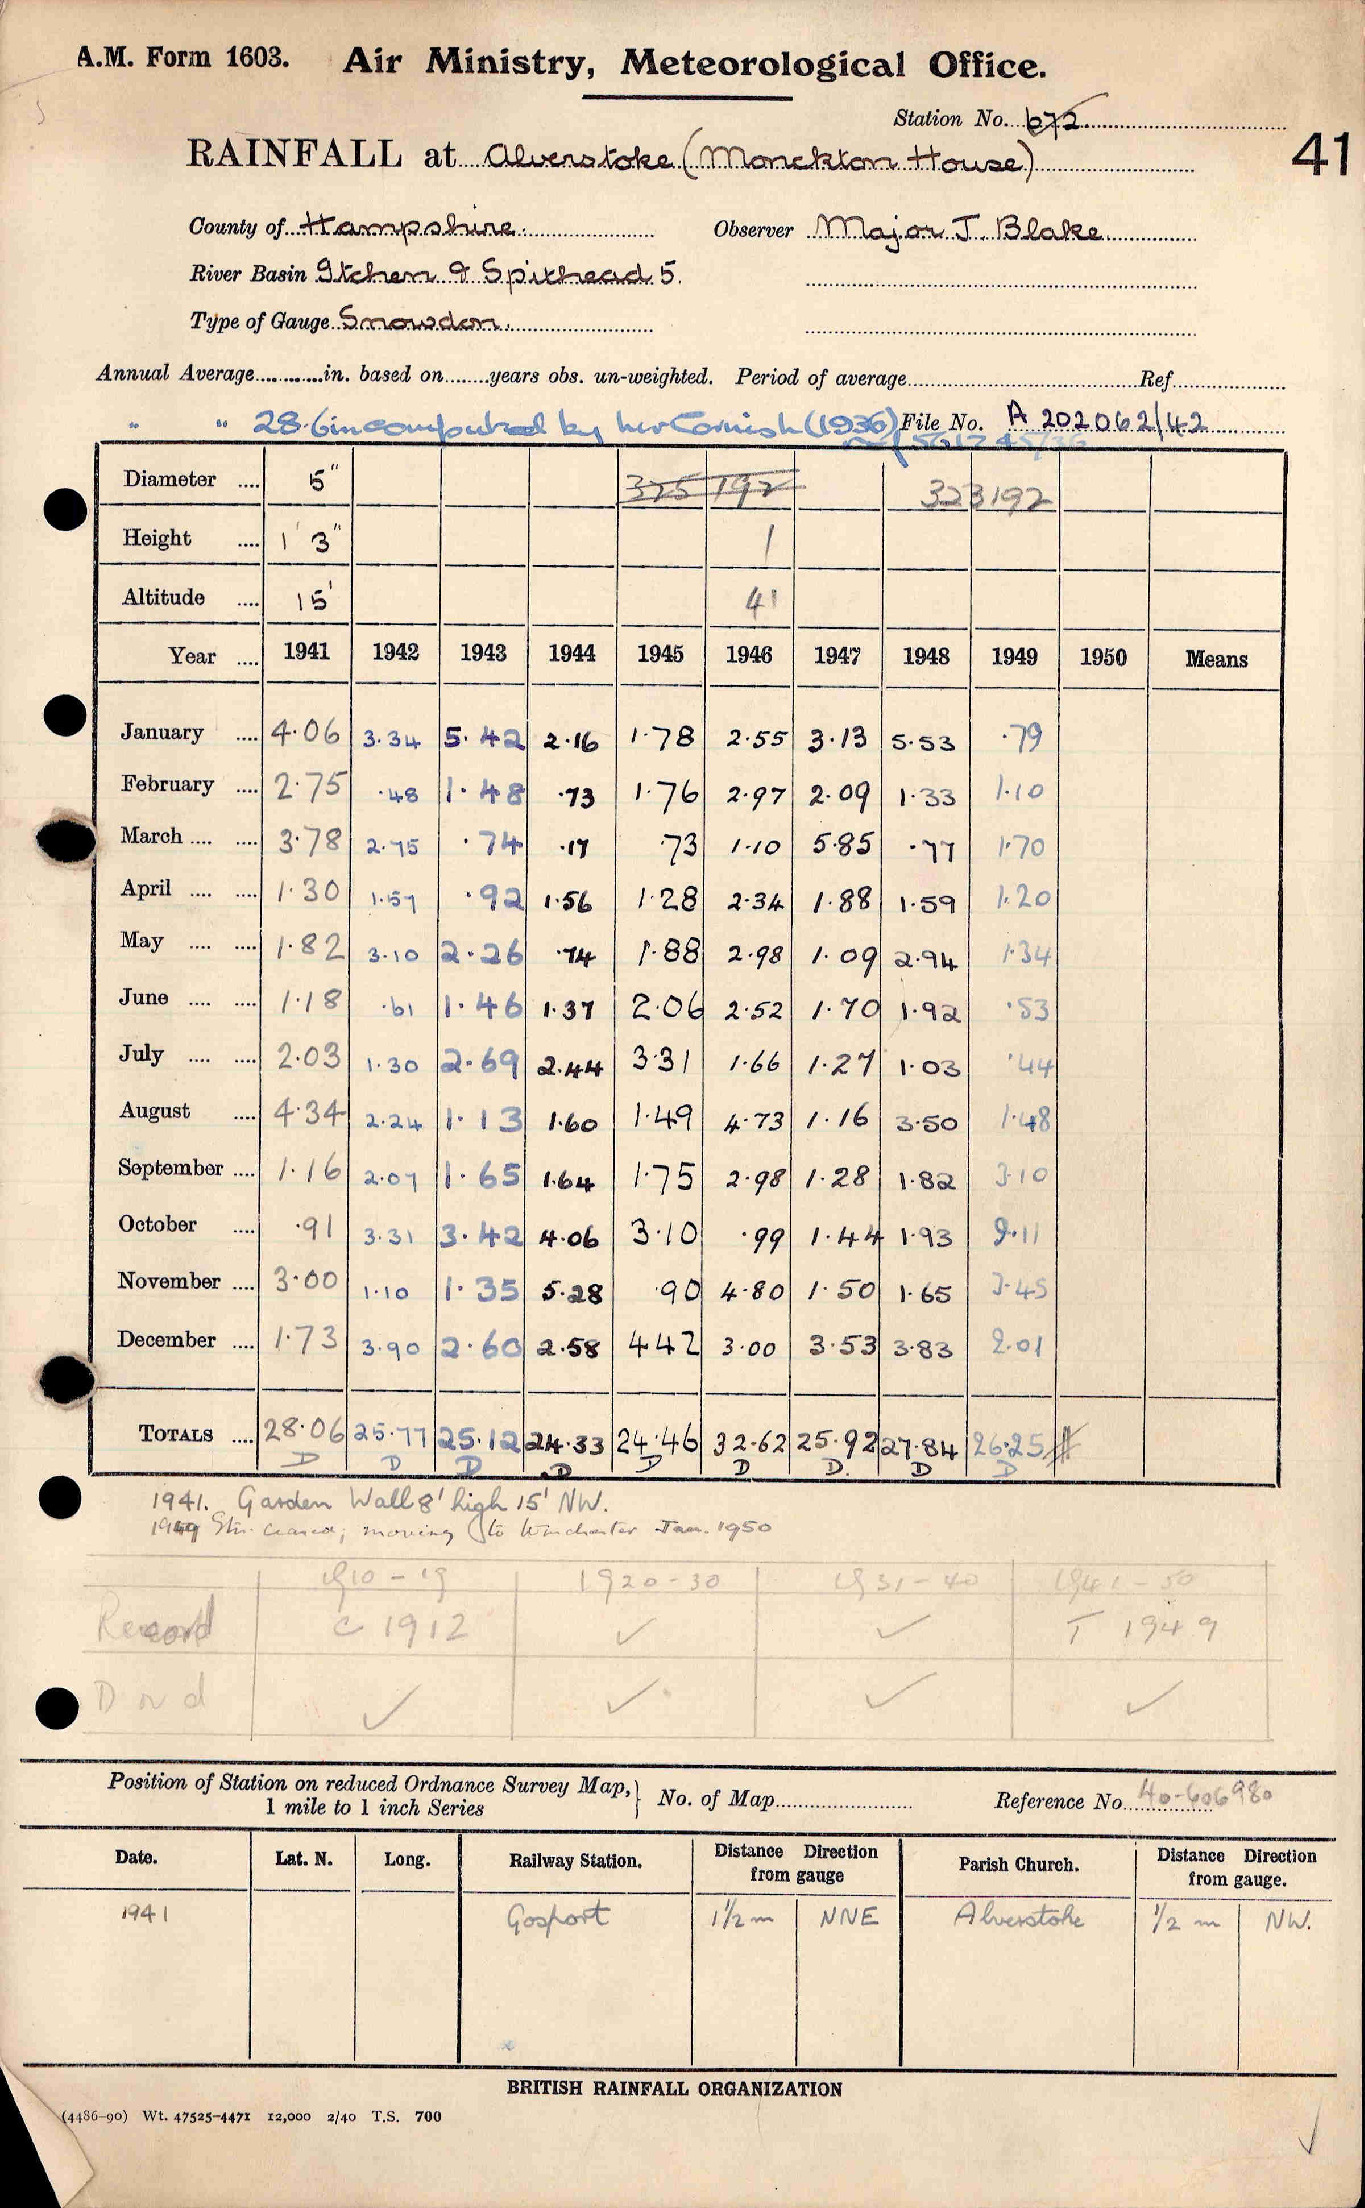 A.M. Form 1603. Air Ministry, Meteorological Office.
Station No. 672
41
RAINFALL at Alverstoke (Monckton House)
County of Hampshire. Observer Major J. Blake
River Basin Itchen & Spithead 5.
Type of Gauge Snowdon.
Annual Average............in. based on........years obs. un-weighted. Period of average.................... Ref....................
" " 28.6in computed by her Cornish (1936) File No. A 202062/42
Diameter .... 5" 325 192 323192
Height .... 1' 3" 1
Altitude .... 15' 41
Year .... 1941 1942 1943 1944 1945 1946 1947 1948 1949 1950 Means
January .... 4·06 3·34 5·42 2·16 1·78 2·55 3·13 5·53 ·79
February .... 2·75 ·48 1·48 ·73 1·76 2·97 2·09 1·33 1·10
March .... .... 3·78 2·75 ·74 ·17 ·73 1·10 5·85 ·77 1·70
April .... .... 1·30 1·57 ·92 1·56 1·28 2·34 1·88 1·59 1·20
May .... .... 1·82 3·10 2·26 ·74 1·88 2·98 1·09 2·94 1·34
June .... .... 1·18 ·61 1·46 1·37 2·06 2·52 1·70 1·92 ·53
July .... .... 2·03 1·30 2·69 2·44 3·31 1·66 1·27 1·03 ·44
August .... 4·34 2·24 1·13 1·60 1·49 4·73 1·16 3·50 1·48
September .... 1·16 2·07 1·65 1·64 1·75 2·98 1·28 1·82 3·10
October .... ·91 3·31 3·42 4·06 3·10 ·99 1·44 1·93 9·11
November .... 3·00 1·10 1·35 5·28 ·90 4·80 1·50 1·65 3·45
December .... 1·73 3·90 2·60 2·58 4·42 3·00 3·53 3·83 2·01
TOTALS .... 28·06 25·77 25·12 24·33 24·46 32·62 25·92 27·84 26·25
D D D D D D D. D D
1941. Garden Wall 8' high 15' NW.
1949 Stn. ceased; moving to Winchester Jan. 1950
1910-19 1920-30 1931-40 1941-50
Record C 1912 ✓ ✓ T 1949
D ✓ ✓ ✓ ✓
Position of Station on reduced Ordnance Survey Map,} No. of Map.................... Reference No. 40-606980
1 mile to 1 inch Series
Date. Lat. N. Long. Railway Station. Distance from gauge Direction Parish Church. Distance from gauge. Direction
1941 Gosport 1½ m NNE Alverstoke ½ m NW.
BRITISH RAINFALL ORGANIZATION
(4486-90) Wt. 47525-4471 12,000 2/40 T.S. 700